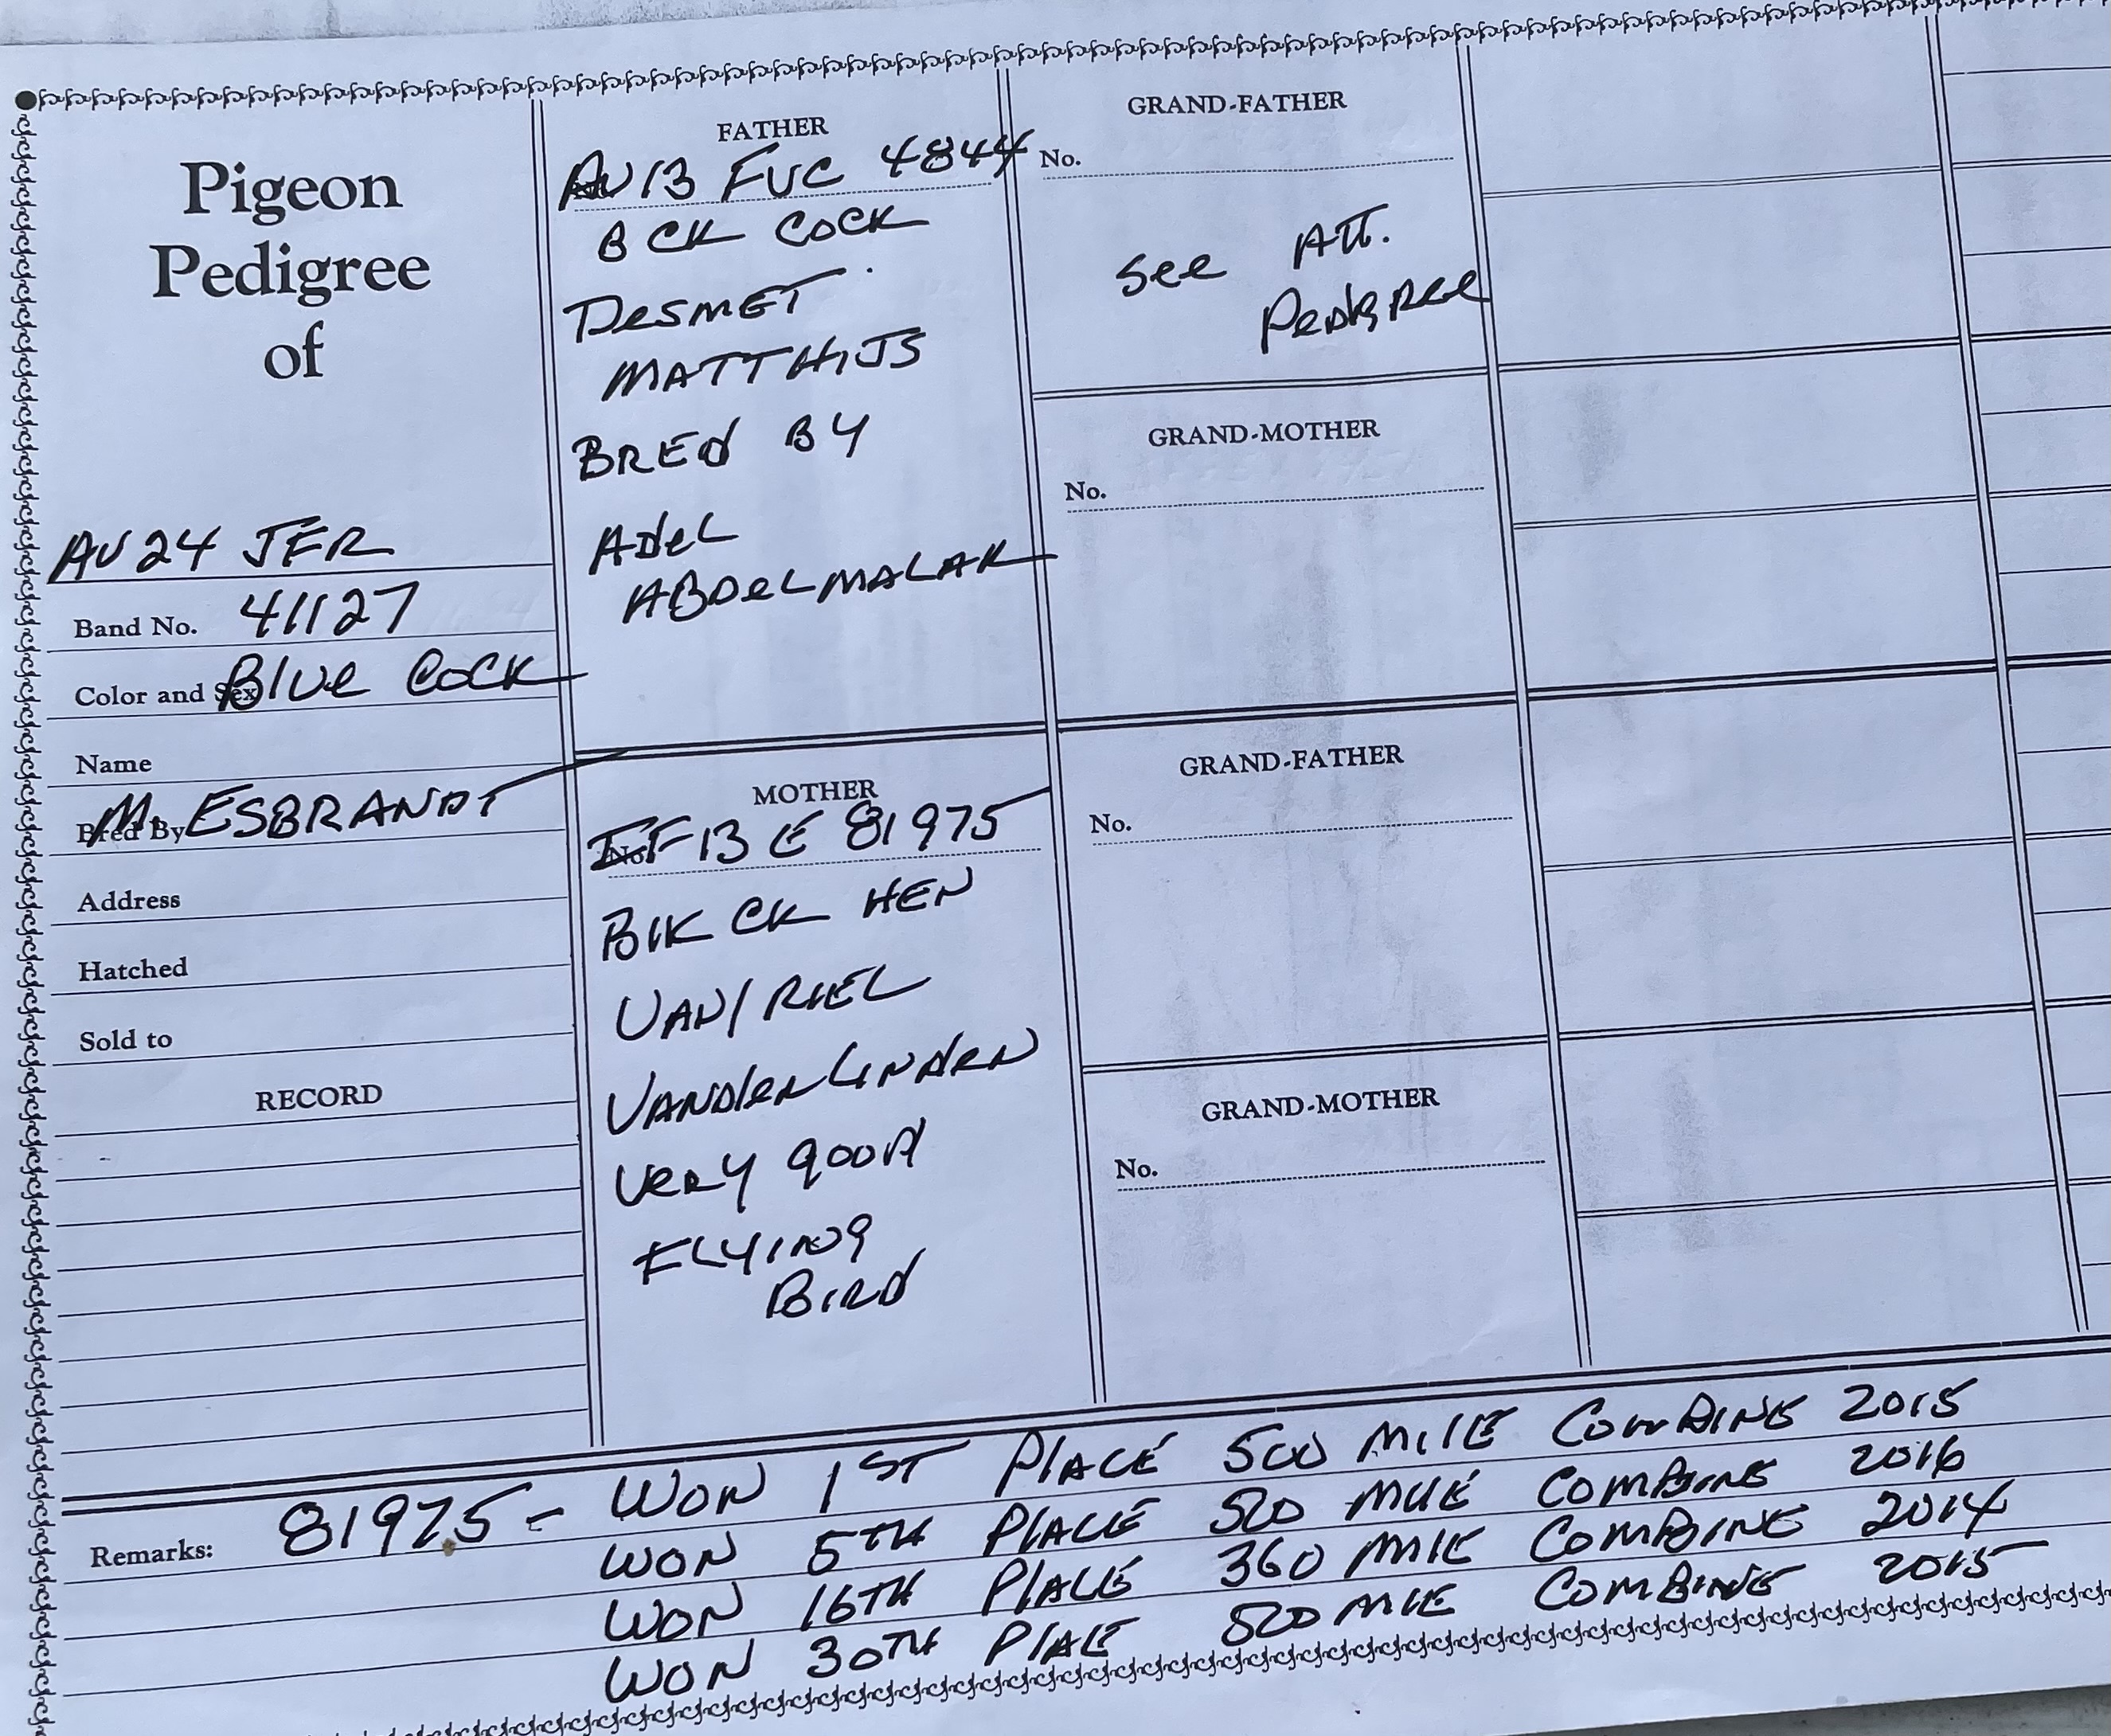 Pigeon
Pedigree
of
AU 24 JFR
Band No. 41127
Color and Sex Blue Cock
Name
Bred By M. ESBRANDT
Address
Hatched
Sold to
RECORD
FATHER
AU 13 FUC 4844
B CK COCK
DESMET
MATTHIJS
BRED BY
ADEL
ABDELMALAK
MOTHER
No. IF 13 E 81975
BlK CK HEN
VAN/RIEL
VANDERLINDEN
VERY good
FLYING
BIRD
GRAND-FATHER
No.
See ATT.
Pedigree
GRAND-MOTHER
No.
GRAND-FATHER
No.
GRAND-MOTHER
No.
Remarks: 81975 - WON 1ST PLACE 500 MILE COMBINE 2015
WON 5TH PLACE 500 MILE COMBINE 2016
WON 16TH PLACE 360 MILE COMBINE 2014
WON 30TH PLACE 500 MILE COMBINE 2015